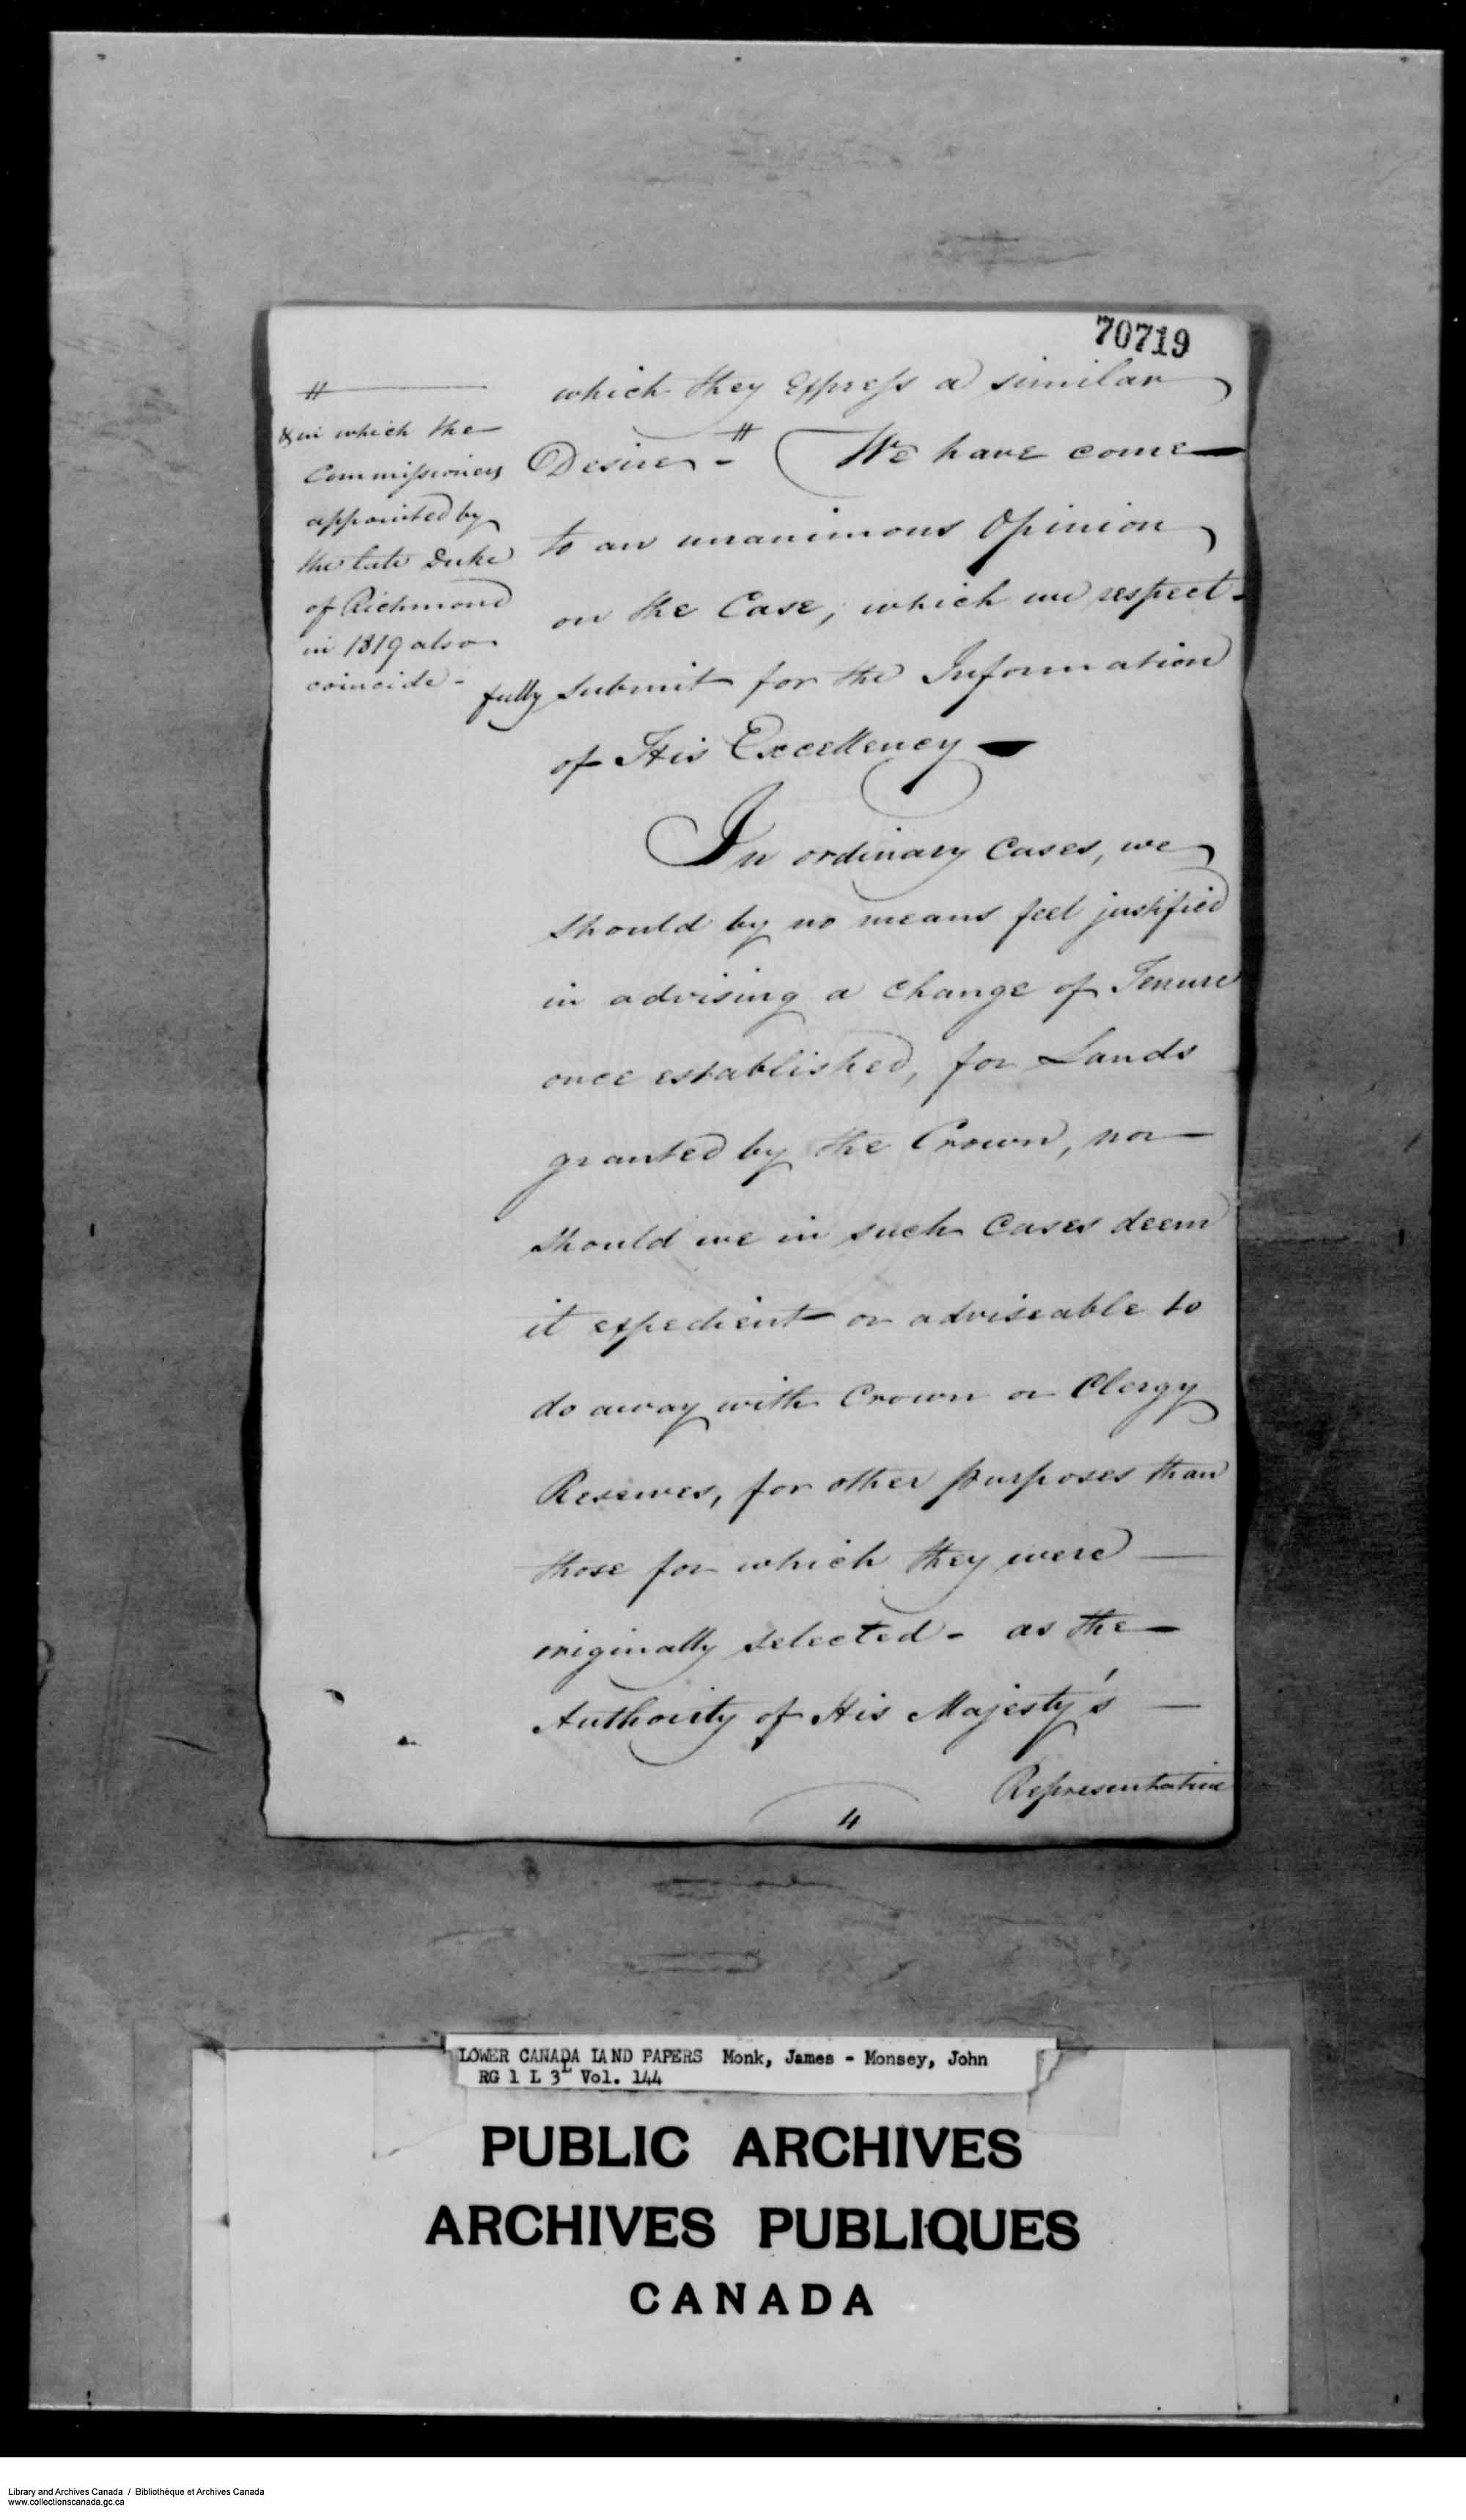 70719
#
& in which the
Commissioners
appointed by
the late Duke
of Richmond
in 1819 also
coincide -
which they express a similar
Desire - # We have come
to an unanimous Opinion
on the Case, which we respect-
fully submit for the Information
of His Excellency
In ordinary Cases, we
should by no means feel justified
in advising a change of Tenure
once established, for Lands
granted by the Crown, nor
should we in such Cases deem
it expedient or adviseable to
do away with Crown or Clergy
Reserves, for other purposes than
those for which they were
originally selected - as the
Authority of His Majesty's
Representative
4
LOWER CANADA LAND PAPERS Monk, James - Monsey, John
RG 1 L 3L Vol. 144
PUBLIC ARCHIVES
ARCHIVES PUBLIQUES
CANADA
Library and Archives Canada / Bibliothèque et Archives Canada
www.collectionscanada.gc.ca